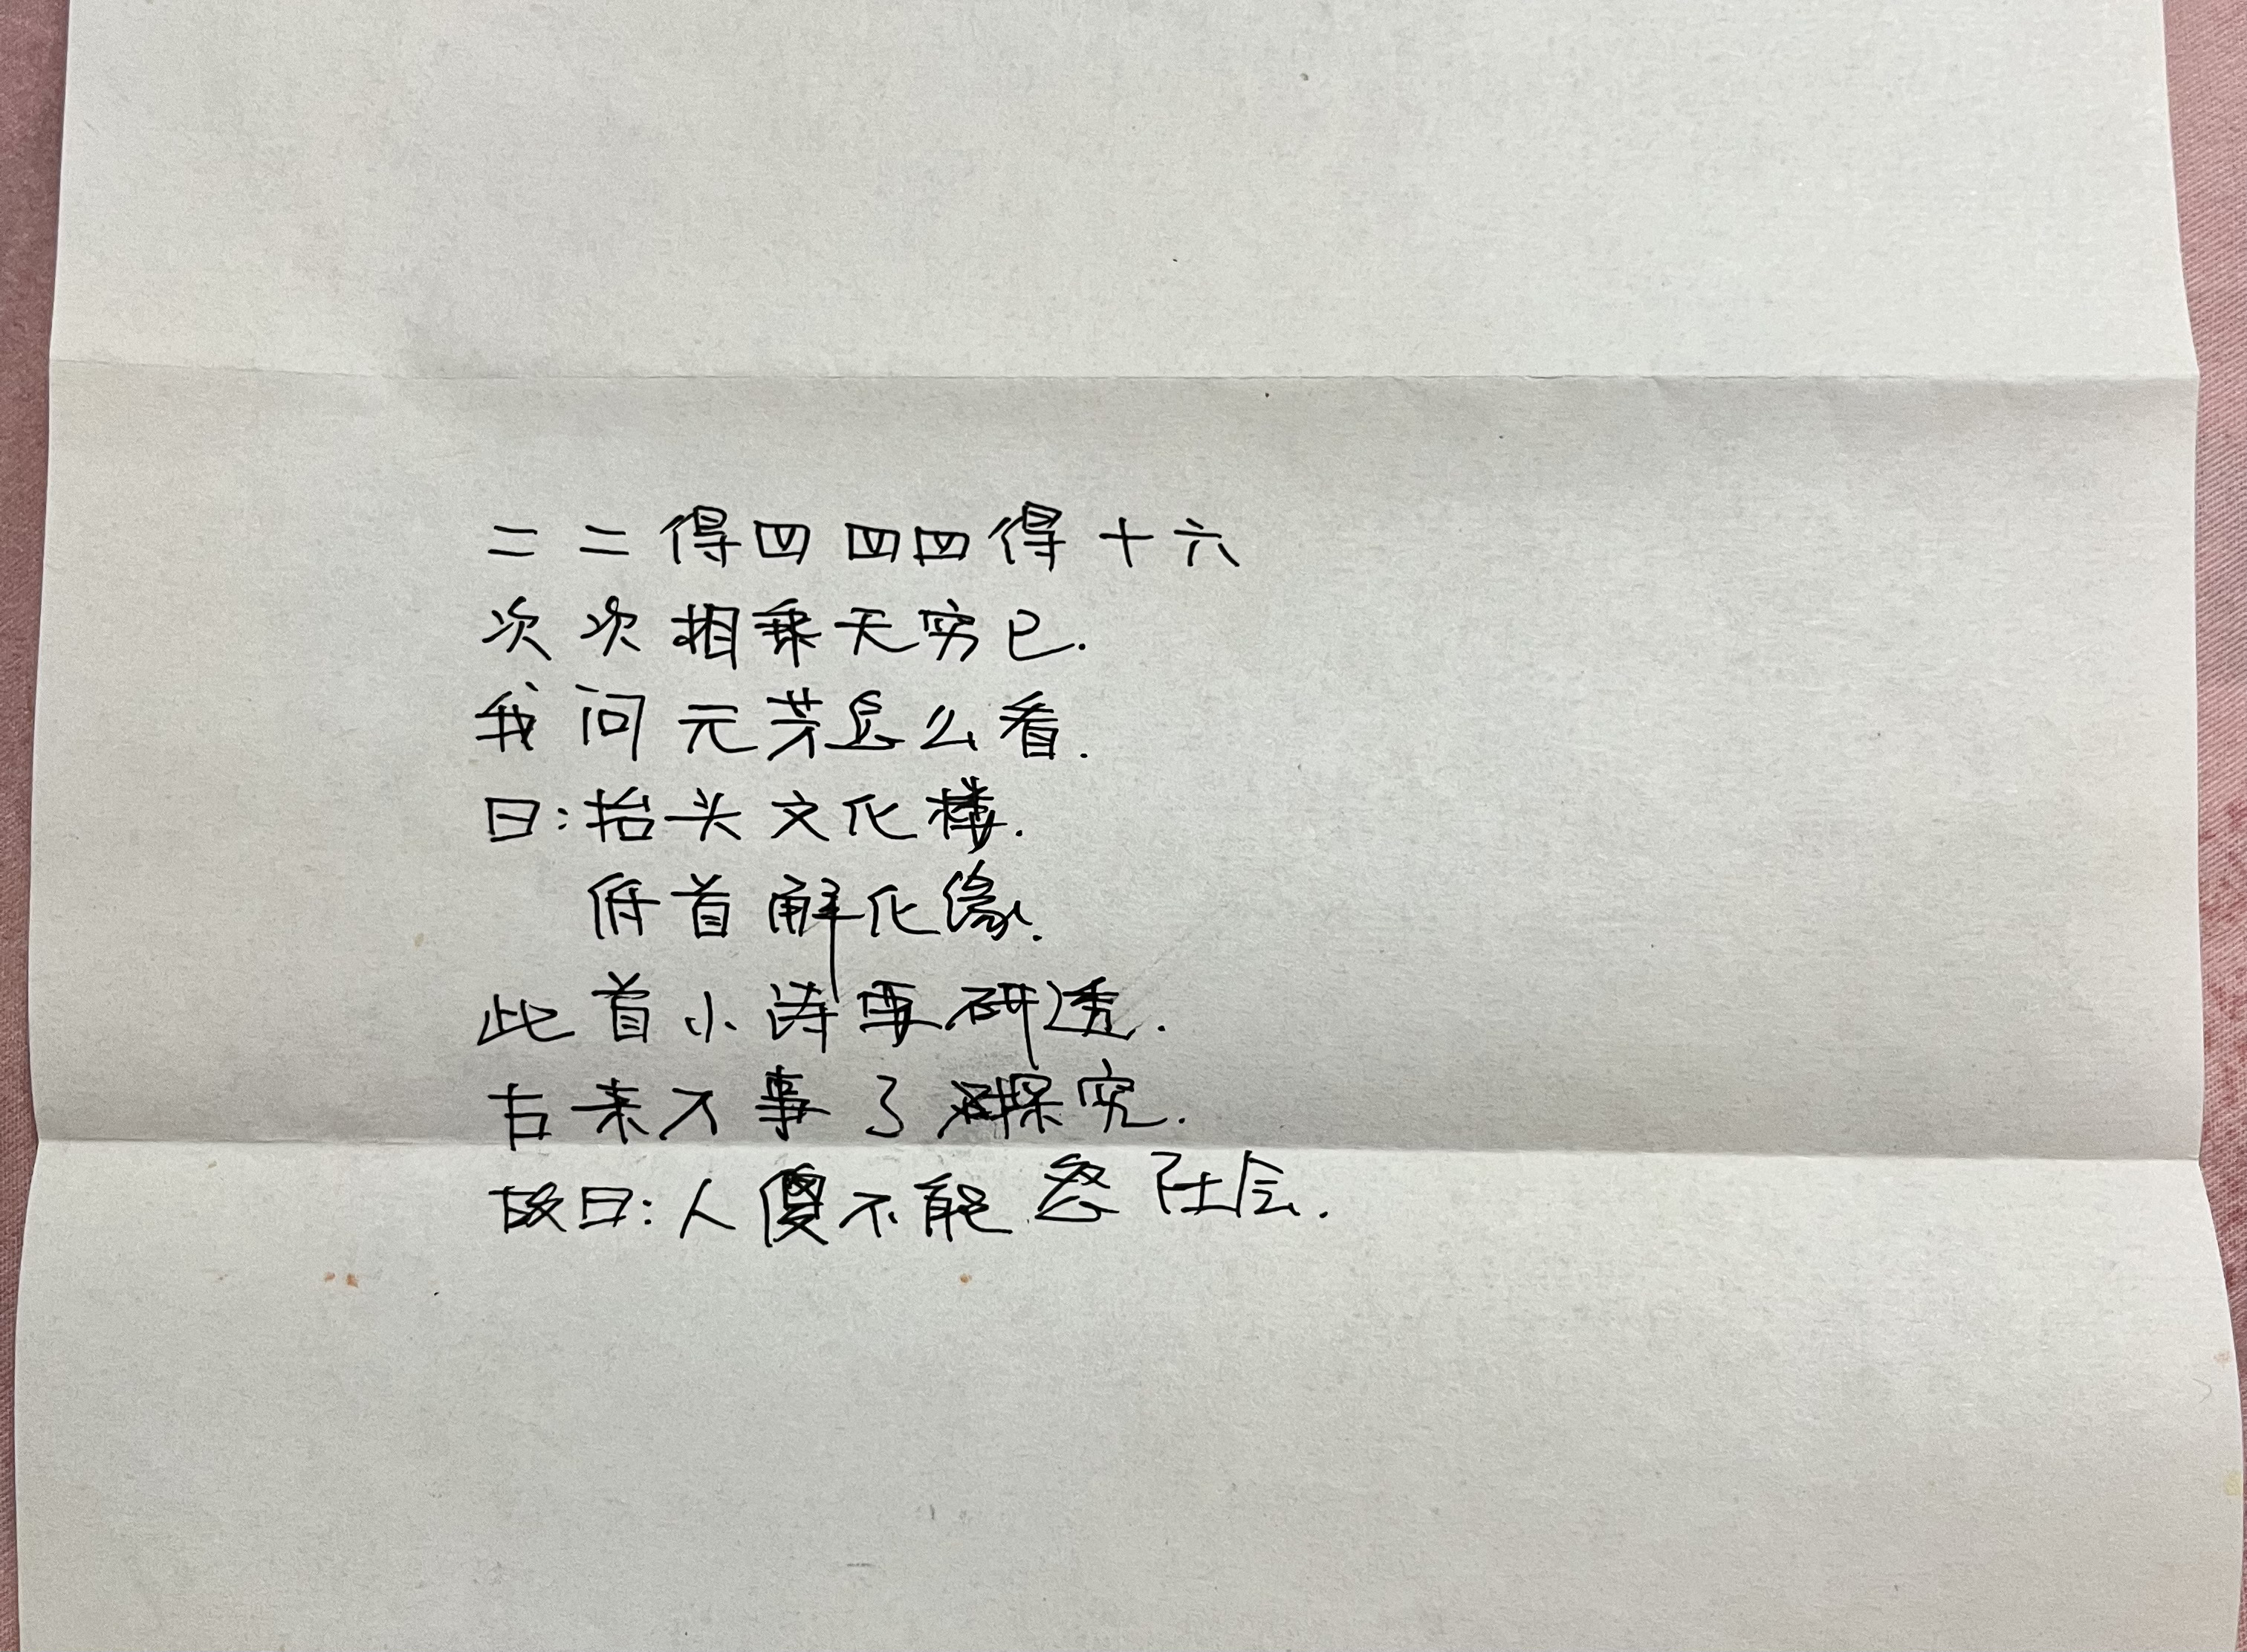 二二得四四四得十六
次次相乘无穷已.
我问元芳怎么看.
曰:抬头文化楼.
低首解化缘.
此首小诗要研透.
古来不事了探究.
故曰:人傻不能怨社会.